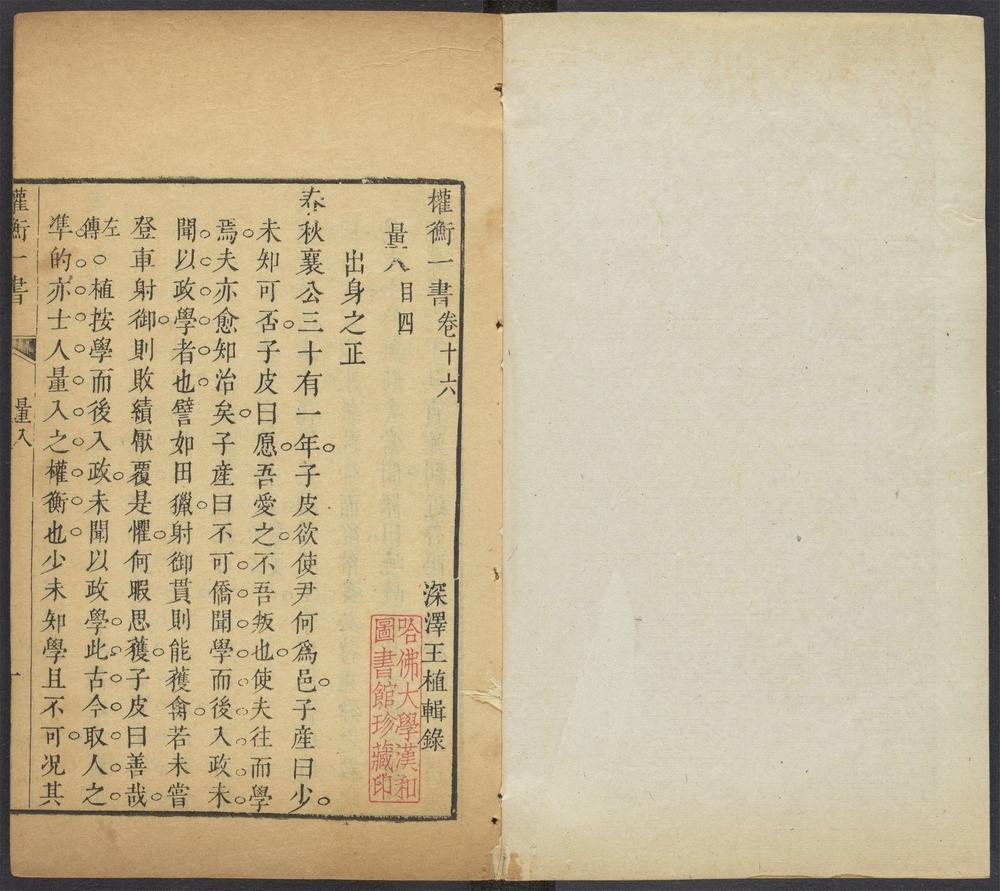 權衡一書卷十六
深澤王植輯錄
量入目四
出身之正
春秋襄公三十有一年子皮欲使尹何爲邑子產曰少
未知可否子皮曰愿吾愛之不吾叛也使夫往而學
焉夫亦愈知治矣子產曰不可僑聞學而後入政未
聞以政學者也譬如田獵射御貫則能獲禽若未嘗
登車射御則敗績厭覆是懼何暇思獲子皮曰善哉
左傳○植按學而後入政未聞以政學此古今取人之
準的亦士人量入之權衡也少未知學且不可况其
權衡一書
量入
一
哈佛大學漢和
圖書館珍藏印